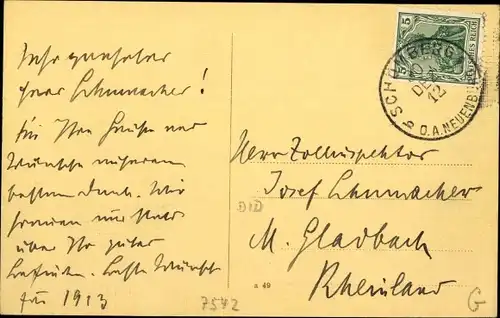 Sehr geehrter
Herr Schumacher!
Für Ihre Grüsse und
Wünsche unseren
besten Dank. Wir
freuen uns stets
über Ihr gutes
Befinden. Beste Wünsche
für 1913
5
DEUTSCHES REICH
SCHÖMBERG
DEZ
12
b O.A. NEUENBÜRG
Herrn Zollinspektor
Josef Schumacher
M. Gladbach
Rheinland
a 49
7572
G